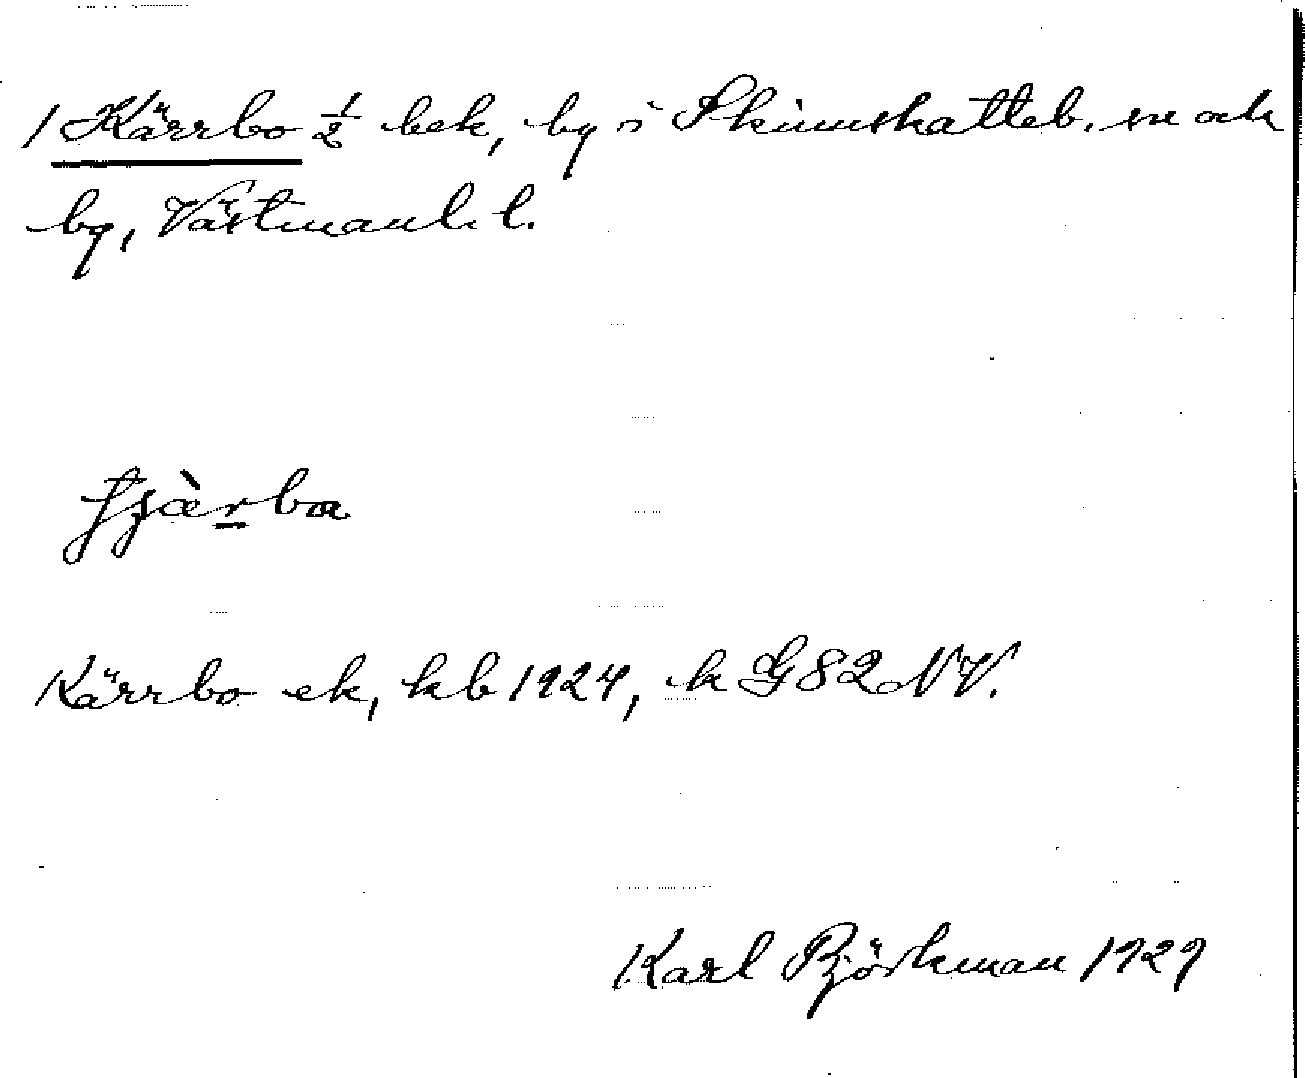 1 Kärrbo ½ bek, by i Skinnskatteb. sn och
by, Västmanl. l.
Kärrbo ek, kb 1924, k G82 NV.
Karl Björkman 1929